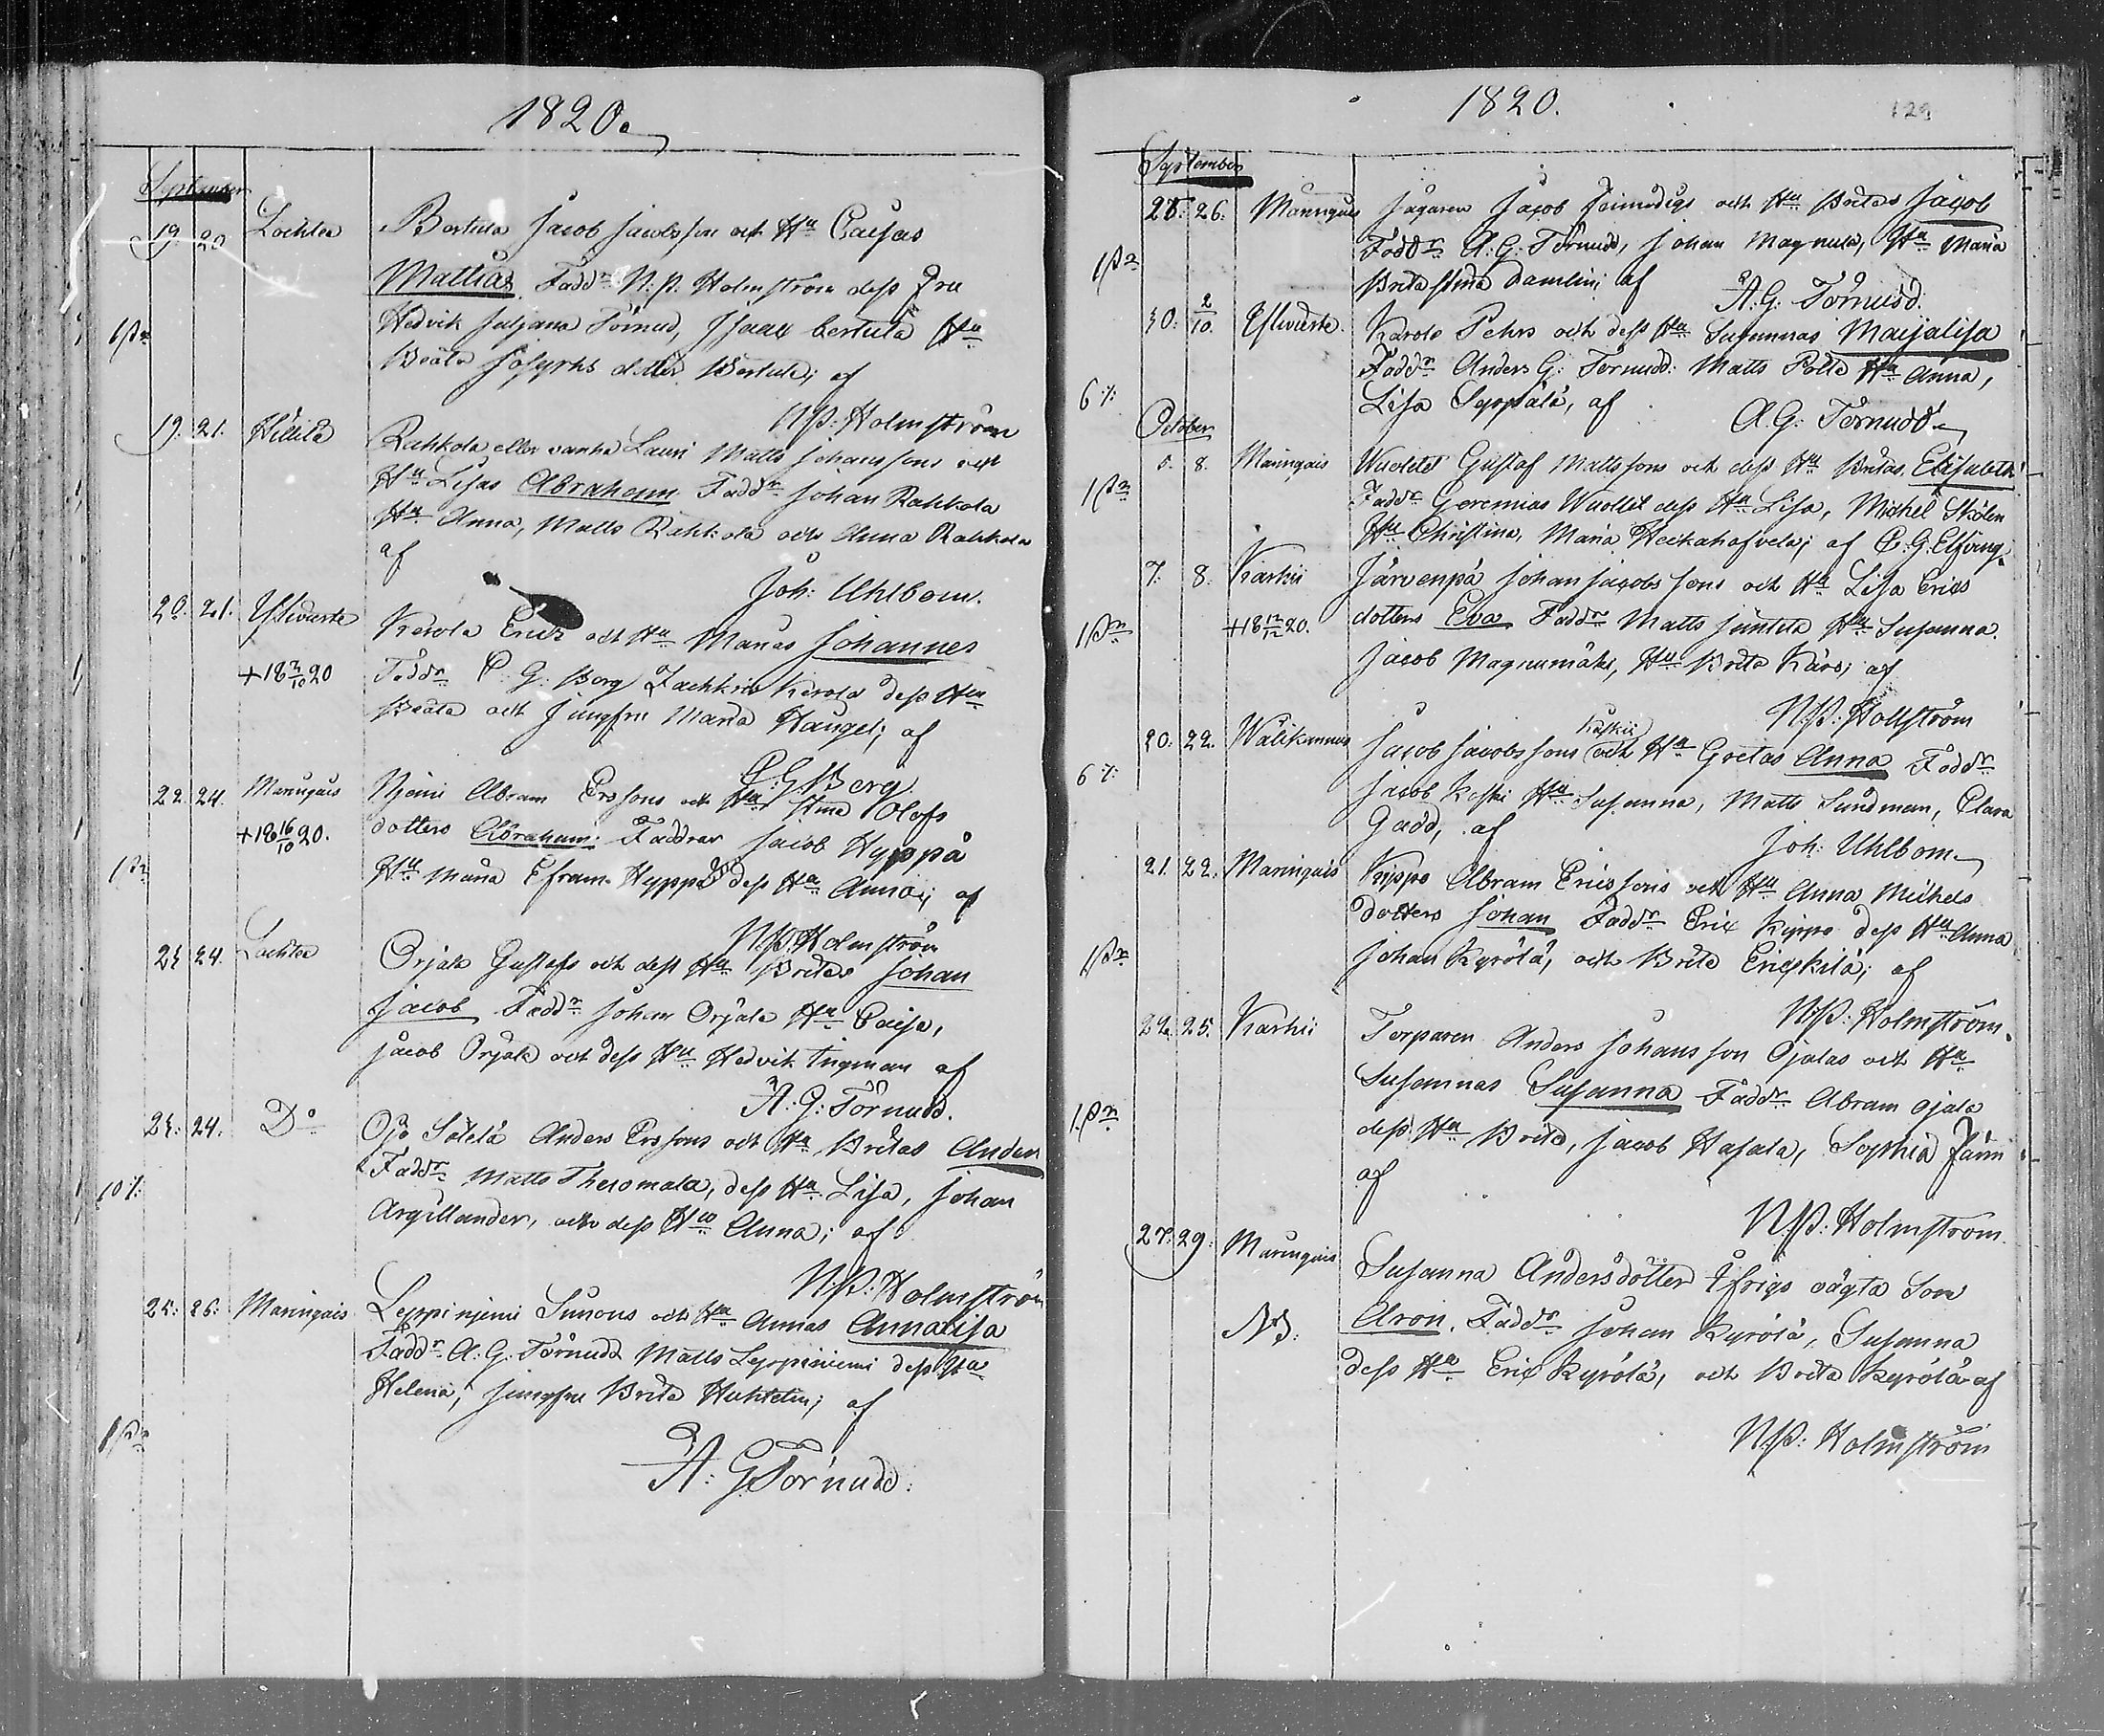 1820.
September
19. 20 Lochteå Bertula Jacob Jacobsson och Hu Caisas
Mattias. Faddr N. P. Holmström dess Fru
1 Pn Hedvik Juljana Törnud, Isaac bertula Hu
Beata Josephs dotter Bertula; af
N P: Holmström
19. 21. Hillilä Rahkola eller vanha Lauri Matts Johanssons och
Hu Lisas Abraham Faddr Johan Rahkola
Hu Anna, Matts Rahkola och Anna Rahkola
af
Joh: Uhlbom.
20. 21. Yliviirre Kerola Erick och Hu Marias Johannes
+18 3/10 20 Faddr C. G. Borg Zachris Kerola dess Hu
Beata och Jungfru Maria Haugel; af
C. G. Borg
22. 24. Marinqais Njemi Abram Erssons och Hu Stina Olofs
+18 16/10 20. dotters Abraham: Faddrar Jacob Hyppä
1 Pn Hu Maria Efraim Hyppä dess Hu Anna; af
N. P. Holmström
24. Lochteå Orjala Gustafs och dess Hu Britas Johan
Jacob Faddr Johan Orjala Hu Caisa,
Jacob Orjala och dess Hu Hedvik Tingman af
A. G: Törnudd.
24. Do Ojo Anders Erssons och Hu Britas Anders
Faddr Matts dess Hu Lisa, Johan
10 %: Argillander, och dess Hu Anna; af
N. P: Holmström
25: 26: Marinqais Leppinjemi Simons och Hu Annas Annalisa
Faddr A: G. Törnudd Matts Leppiniemi dess Hu
Helena, Jungfru Brita Huhtelin; af
1 Pn
A: G Törnudd:
1820. 129
September
26. Marinqais Jägaren Jacob och Hu Britas Jacob
Faddr A: G: Törnudd, Johan Magnula, Hu Maria
1 Pn Brita Stina Damlin; af
A: G: Törnudd.
30: 2/10. Yliviirre. Karolo Pehrs och dess Hu Susannas Maijalisa
Faddr Anders G: Törnudd: Matts Hu Anna,
6 %: Lisa Seppälä, af
A. G: Törnudd
October
5. 8. Marinqais Wuolлet Gustaf Mattssons och dess Hu Britas Elisabeth
1 Pn Faddr Geremias Wuollet dess Hu Lisa, Michel Skölen
Hu Christina, Maria af C: G: Elfving
7. 8. Karhii Järvenpä Johan Jacobssons och Hu Lisa Erics
1 Pn +18 12/12 20. dotters Eva Faddr Matts Juntila Hu Susanna.
Jacob Magnumäki, Hu Brita Käro; af
N. P: Hollström
20. 22. Wälikannus Jacob Jacobssons Kaskii och Hu Gretas Anna Faddr
6 %: Jacob Koski Hu Susanna, Matts Sundman, Clara
Gadd, af
Joh: Uhlbom.
21. 22. Marinqais Kippo Abram Ericssons och Hu Anna Michels
dotters Johan Faddr Eric Kippo dess Hu Anna
1 Pn Johan Kyrölä, och Brita Ericskilä; af
N. P: Holmström.
22. 25. Karhii Torparen Anders Johansson Ojalas och Hu
Susannas Susanna Faddr Abram Ojala
1. Pn dess Hu Brita, Jacob Hasala, Sophia
af
N. P: Holmström.
27. 29. Marinqais Susanna Andersdotter Yfrigs oägta Son
NB: Aron. Faddr Johan Kyrölä, Susanna
dess Hu Eric Kyrölä, och Brita Kyrölä af
N. P: Holmström